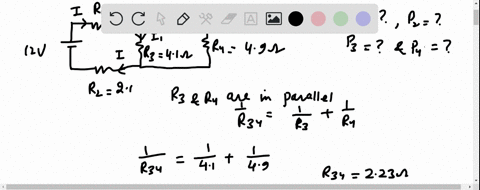 I R ? , P₂ = ?
12V I I₁ R₃ = 4.1Ω R₄ = 4.9Ω P₃ = ? & P₄ = ?
R₂ = 2.1
R₃ & R₄ are in parallel
1/R₃₄ = 1/R₃ + 1/R₄
1/R₃₄ = 1/4.1 + 1/4.9
R₃₄ = 2.23Ω